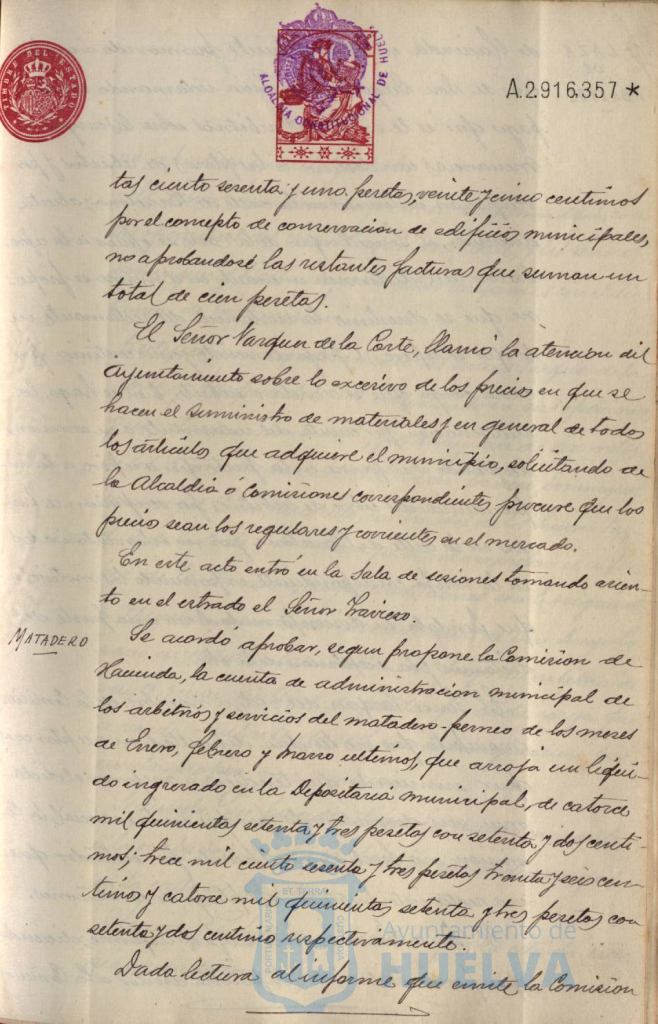 TIMBRE DEL ESTADO
ALCALDIA CONSTITUCIONAL DE HUELVA
A.2.916,357 *
tas ciento sesenta y una pesetas, veinte y cinco centimos
por el concepto de conservacion de edificios municipales,
no aprobandose las restantes facturas que suman un
total de cien pesetas.
El Señor Vazquez de la Corte, llamó la atencion del
Ayuntamiento sobre lo excesivo de los precios en que se
hacen el suministro de materiales y en general de todos
los articulos que adquiere el municipio, solicitando de
la Alcaldia ó Comisiones correspondientes procure que los
precios sean los regulares y corrientes en el mercado.
En este acto entró en la sala de sesiones tomando asien-
to en el estrado el Señor Travieso.
MATADERO
Se acordó aprobar, segun propone la Comision de
Hacienda, la cuenta de administracion municipal de
los arbitrios y servicios del matadero-perneo de los meses
de Enero, febrero y Marzo ultimos, que arroja un liqui-
do ingresado en la Depositaria municipal, de catorce
mil quinientas setenta y tres pesetas con setenta y dos centi-
mos; trece mil ciento sesenta y tres pesetas treinta y seis cen-
timos y catorce mil quinientas setenta y tres pesetas con
setenta y dos centimos respectivamente.
Dada lectura al informe que emite la Comision
Ayuntamiento de
HUELVA